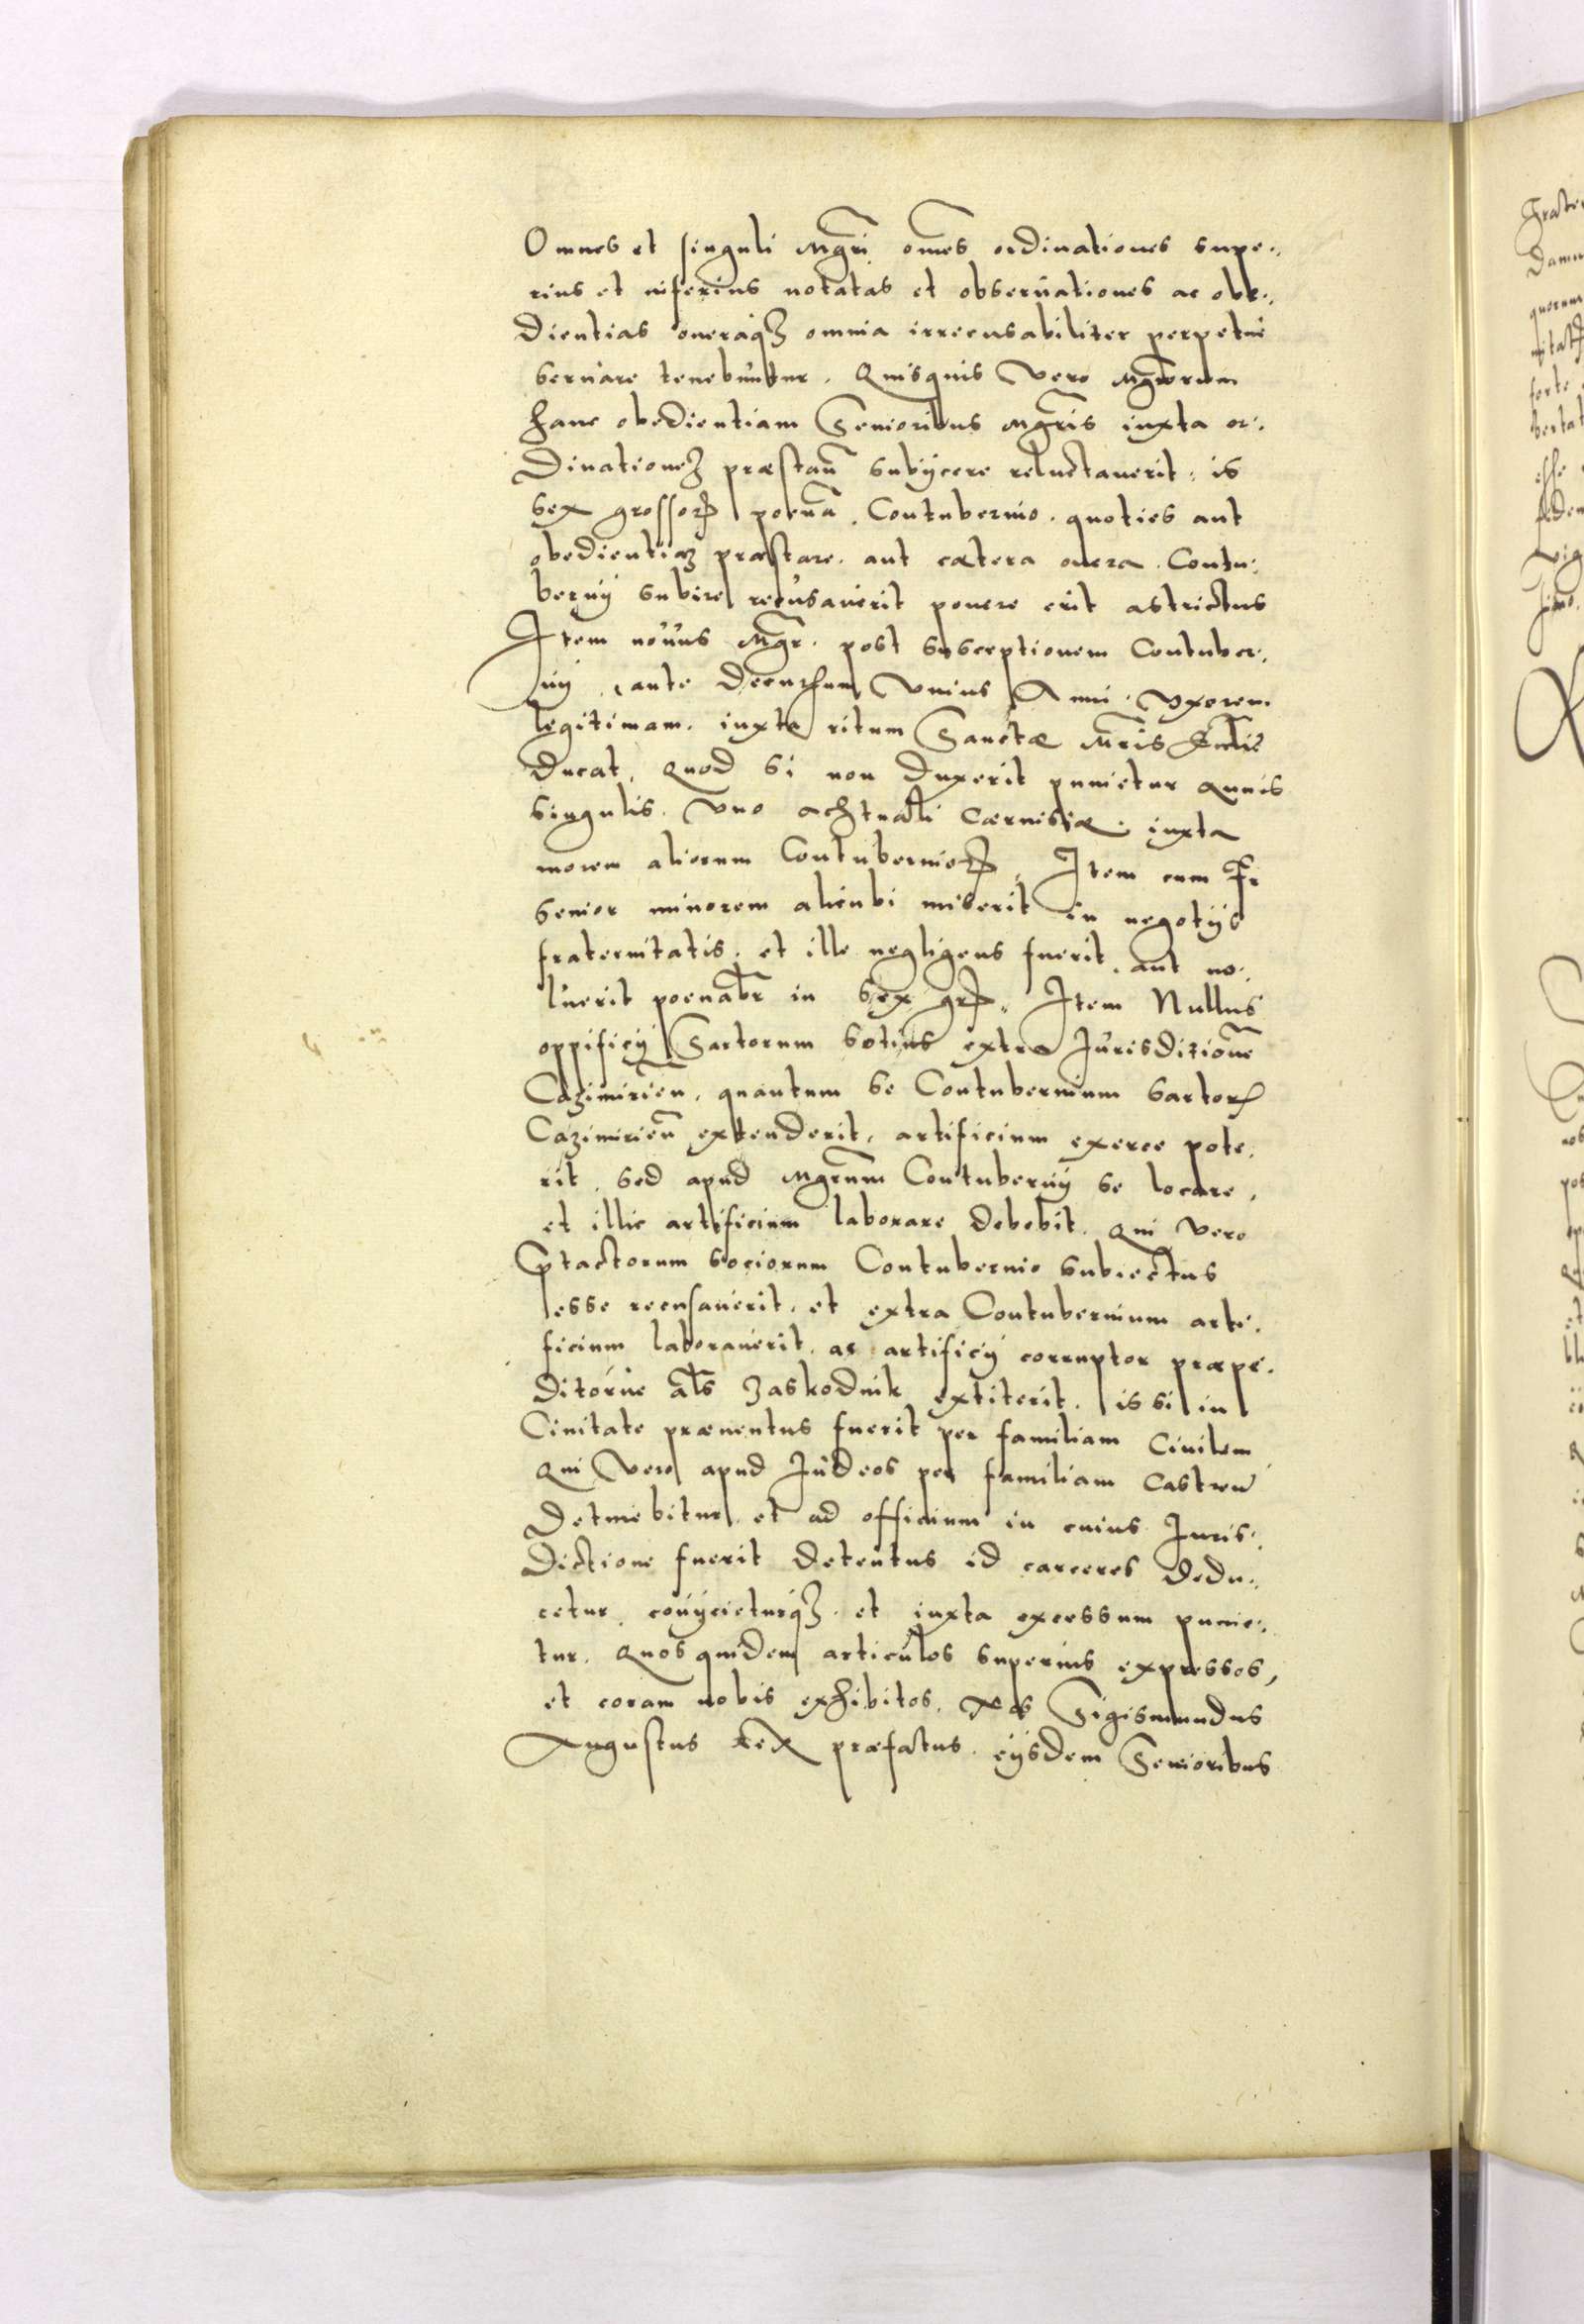 Omnes et singuli Mgri omes ordinationes supe-
rius et inferius notatas et observationes ac obe-
dientias oneraqȝ omnia irrecusabiliter perpetue
servare tenebuntur. Quisquis vero Mgrorum
hanc obedientiam Senioribus Mgris iuxta or-
dinationeȝ præstan subijcere reluctaverit, is
sex grossoꝝ poena. Contubernio. quoties aut
obedientiaȝ præstare. aut cætera onera. Contu-
bernij subire recusaverit ponere erit astrictus
Item novus Mgr. post susceptionem Contuber-
nij, ante decursum Vnius Anni. Vxorem
legitimam. iuxta ritum Sanctæ Mris Ecclie
ducat. Quod si non duxerit punietur Annis
singulis. Vno achtuali Cærvisiæ. iuxta
morem aliorum Contubernioꝝ. Item cum Fr
senior minorem alicubi miserit in negotijs
fraternitatis. et ille negligens fuerit. aut no-
luerit poenabr in sex grꝝ. Item Nullus
oppificij Sartorum sotius extra Iurisditione
Cazimirien, quantum se Contubernium sartoꝝ
Cazimirien extenderit, artificium exerce pote-
rit. sed apud Mgrum Contubernij se locare,
et illic artificium laborare debebit. Qui vero
Ptactorum sociorum Contubernio subiectus
esse recusaverit. et extra Contubernium arti-
ficium laboraverit. ac artificij corruptor præpe-
ditorve als Zaskodnik extiterit. is si in
Civitate præventus fuerit per familiam Civilem
Qui vero apud Iudeos per familiam Castren
Detinebitur. et ad officium in cuius Iuris-
dictione fuerit detentus id carceres dedu-
cetur. conijcieturqȝ. et iuxta excessum punie-
tur. Quos quidem articulos superius expressos,
et coram nobis exhibitos. Nos Sigismundus
Augustus Rex præfatus. eijsdem Senioribus